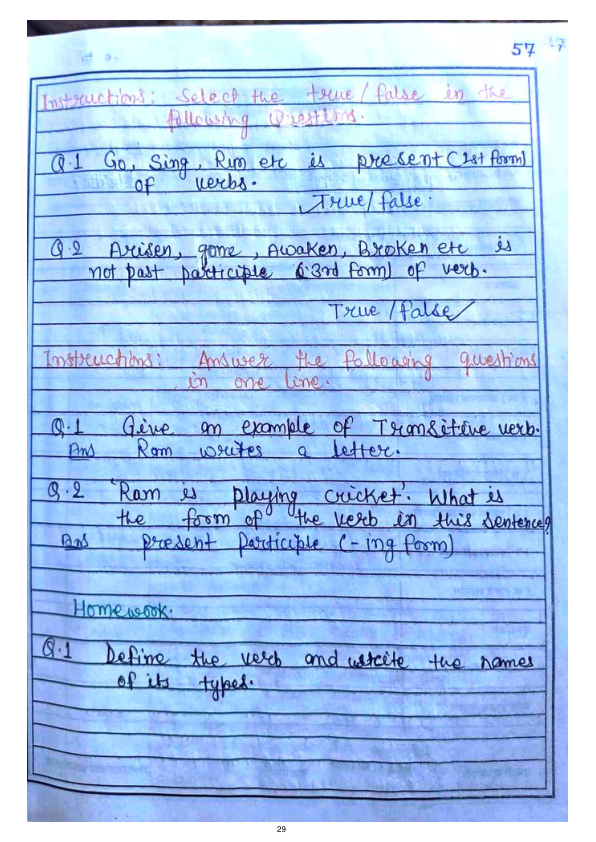 57
Instructions: Select the true/false in the
following Questions.
Q.1 Go, Sing, Run etc is present (1st form)
of verbs.
True/false.
Q.2 Arisen, gone, Awaken, Broken etc is
not past participle (3rd form) of verb.
True/false
Instructions: Answer the following questions
in one line.
Q.1 Give an example of Transitive verb.
Ans Ram writes a letter.
Q.2 'Ram is playing cricket'. What is
the form of the verb in this sentence?
Ans present participle (-ing form)
Homewook.
Q.1 Define the verb and write the names
of its types.
29